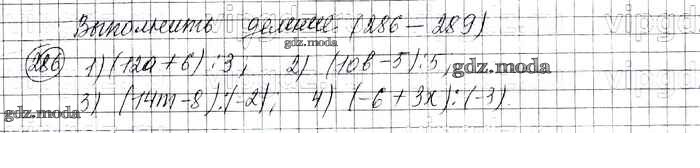 Выполнить деление (286 – 289)
286 1) (12a + 6) : 3, 2) (10b – 5) : 5,
3) (14m – 8) : (–2), 4) (–6 + 3x) : (–3).
gdz.moda
gdz.moda
gdz.moda
vipgd
vipgd